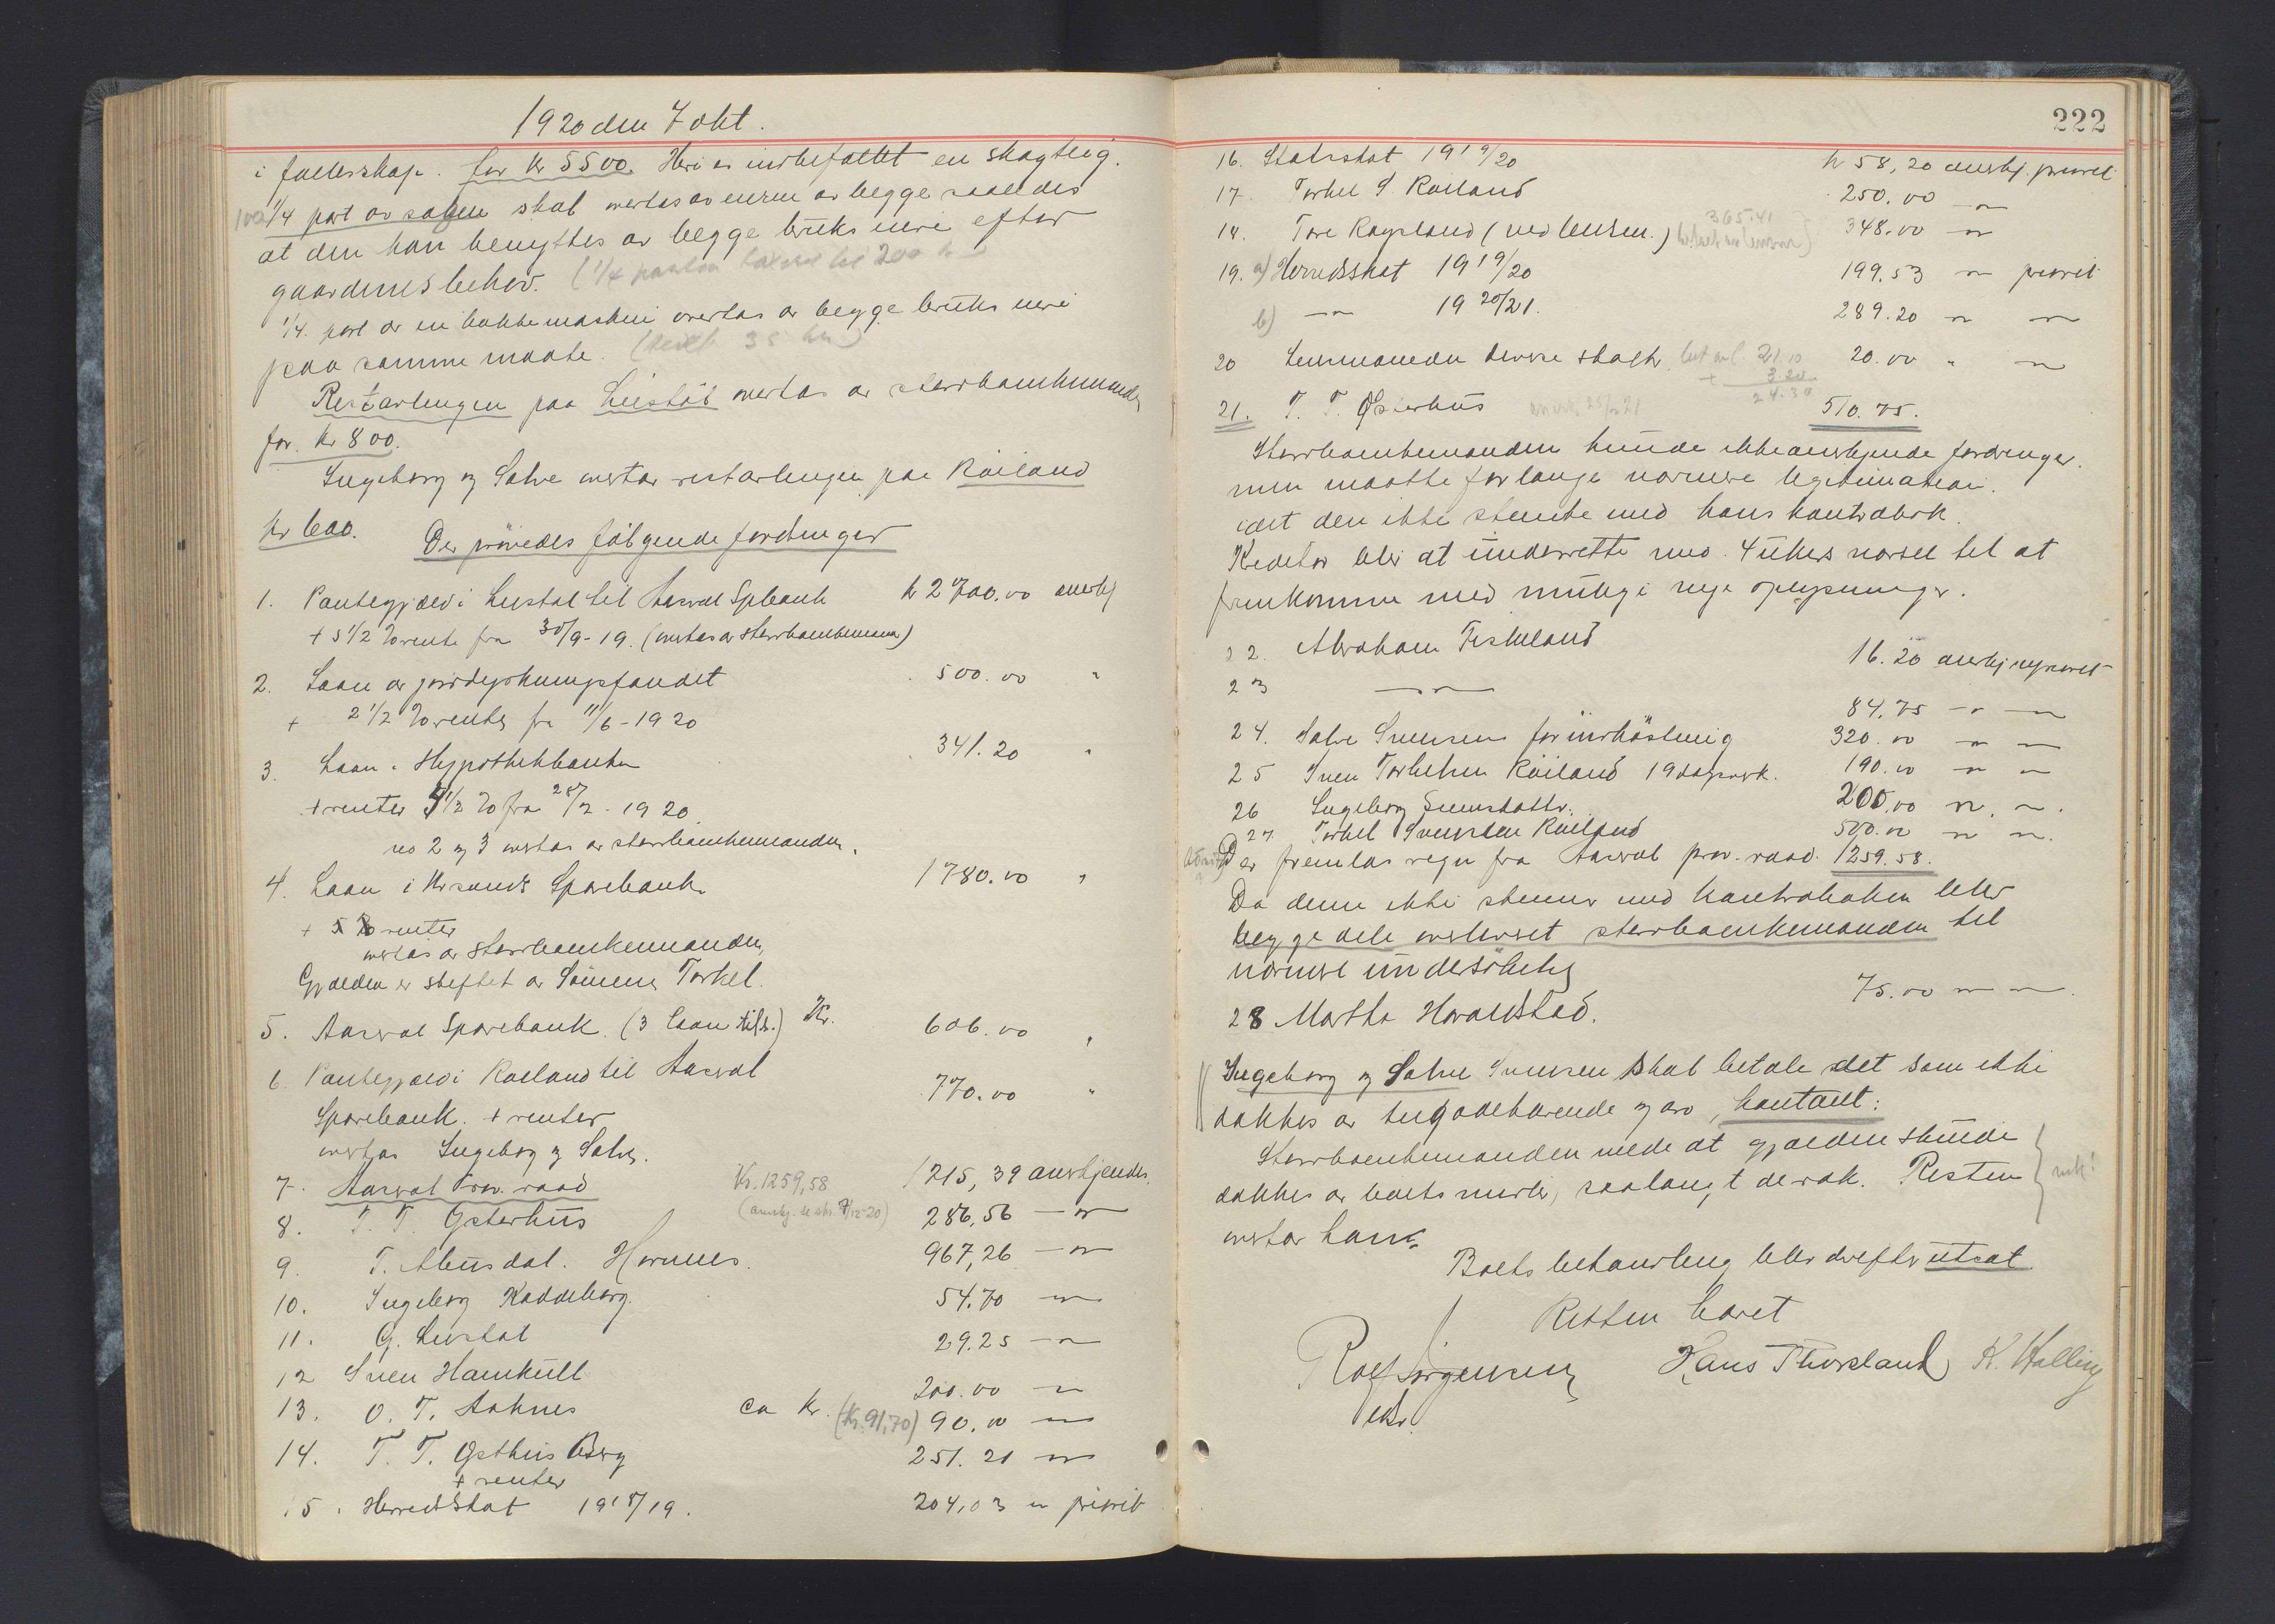 1920 den 7 okt.
i fællesskap. for kr 5500. Heri er indbefattet en skogteig.
1/4 part av sagen skal overtas av eieren av begge saaledes
at den kan benyttes av begge bruks eiere efter
gaardenes behov. (1/4 taxeret til 200 kr
1/4 part av en maskin overtas av begge bruks eiere
paa samme maate. (35 kr)
Restavlingen paa Liestøl overtas av
for kr 800.
Ingeborg og Salve overtar restavlingen paa Røiland
kr 600. Der prøvedes følgende fordringer
1. Pantegjæld i Liestøl til Aaseral Spbank k 2700.00 anerkj
+ 5 1/2 % rente fra 30/9-19. (overtas av sterrboenkemann)
2. Laan av jorddyrkningsfondet 500.00 "
+ 2 1/2 % renter fra 11/6-1920
3. Laan i Hypothekbanken 341.20 "
+ renter 4 1/2 % fra 28/2-1920
no 2 og 3 overtas av sterrboenkemanden.
4. Laan i Kr.sands Sparebank 1780.00 "
+ 5 % renter
overtas av sterrboenkemanden,
Gjælden er stiftet av Sønnen Torkel.
5. Aaseral Sparebank. (3 laan tils.) Kr. 606.00 "
6. Pantegjæld i Røiland til Aaseral 770.00 "
Sparebank. + renter
overtas Ingeborg og Salve.
7. Aaseral Prov. raad Kr. 1259,58 1215,39 anerkjendes.
8. T. T. Østerhus (anerkj. se skr. 7/12-20) 286,56 — " —
9. T. Abusdal. Hornnes. 967,26 — " —
10. Ingeborg Kaddeberg. 54.70 — " —
11. G. Liestøl 29.25 — " —
12 Sven Hamkoll 200.00 — " —
13. O. T. Aaknes ca kr. (Kr. 91,70) 90.00 — " —
14. T. T. Østhus Berg 251.21 — " —
+ renter
15. Herredskat 1918/19. 204,03 " priorit
222
16. Statsskat 1919/20 kr 58,20 anerkj. priorit
17. Torkel S. Røiland 250.00 — " —
18. Tore Røysland (ved lensm.) 365.41 348.00 — " —
19. a) Herredsskat 1919/20 199.53 — " — priorit
b) — " — 1920/21. 289.20 " — " —
20 Lensmanden diverse skatt. 21.10 20.00 " — " —
+ 3.20
24.30
21. T. T. Østerhus 510.75.
Sterrboenkemanden kunde ikke anerkjende fordringen.
men maatte forlange nærmere legitimation.
idet den ikke stemte med hans kontrabok.
Kreditor blir at underrette med 4 ukers varsel til at
fremkomme med mulige nye oplysninger.
22. Abraham Fiskeland 16.20 anerkj
23 — " — 84.75 — " — " —
24. Salve Svensen for indhøstning 320.00 — " — " —
25 Sven Torkelsen Røiland 19 dagsverk. 190.00 — " — " —
26 Ingeborg Svensdatter. 200.00 " — " —
27. Torkel Svensen Røiland 500.00 — " — " —
Der fremlas regn fra Aaseral prov. raad. 1259.58.
Da denne ikke stemmer med kontraboken blev
begge dele overlevert sterrboenkemanden til
nærmere undersøkelse
28 Martha Haraldstad. 75.00 — " — " —
Ingeborg og Salve Svensen skal betale det som ikke
dækkes av tilgodehavende og arv, kontant:
Sterrboenkemanden mente at gjælden skulde
dækkes av boets midler, saalangt de rak. Resten
overtar han.
Boets behandling blev derefter utsat
Retten hævet
Rolf Jørgensen Hans Thorsland K. Halling